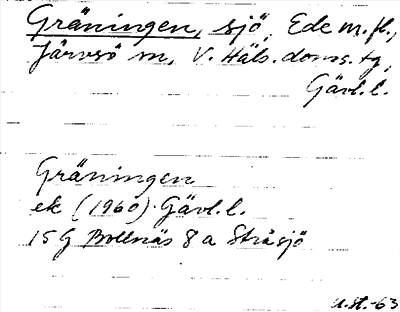 Gräningen, sjö, Ede m.fl.,
Järvsö sn, V. Häls. doms. tg,
Gävl.l.
Gräningen
ek (1960) Gävl.l.
15G Bollnäs 8a Stråsjö
U.St.-63